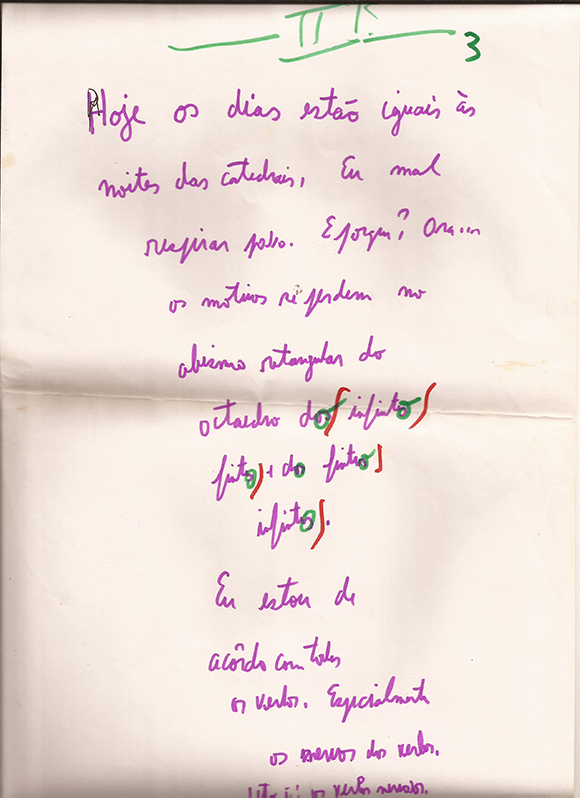 II R.
3
Hoje os dias estão iguais às
noites das catedrais. Eu mal
respirar posso. E porque? Ora...
os motivos se perdem no
abismo retangular do
octaedro dos infinitos
finitos e do finitos
infinitos.
Eu estou de
acôrdo com todos
os verbos. Especialmente
os nervos dos verbos.
isto é: os verbos nervosos.